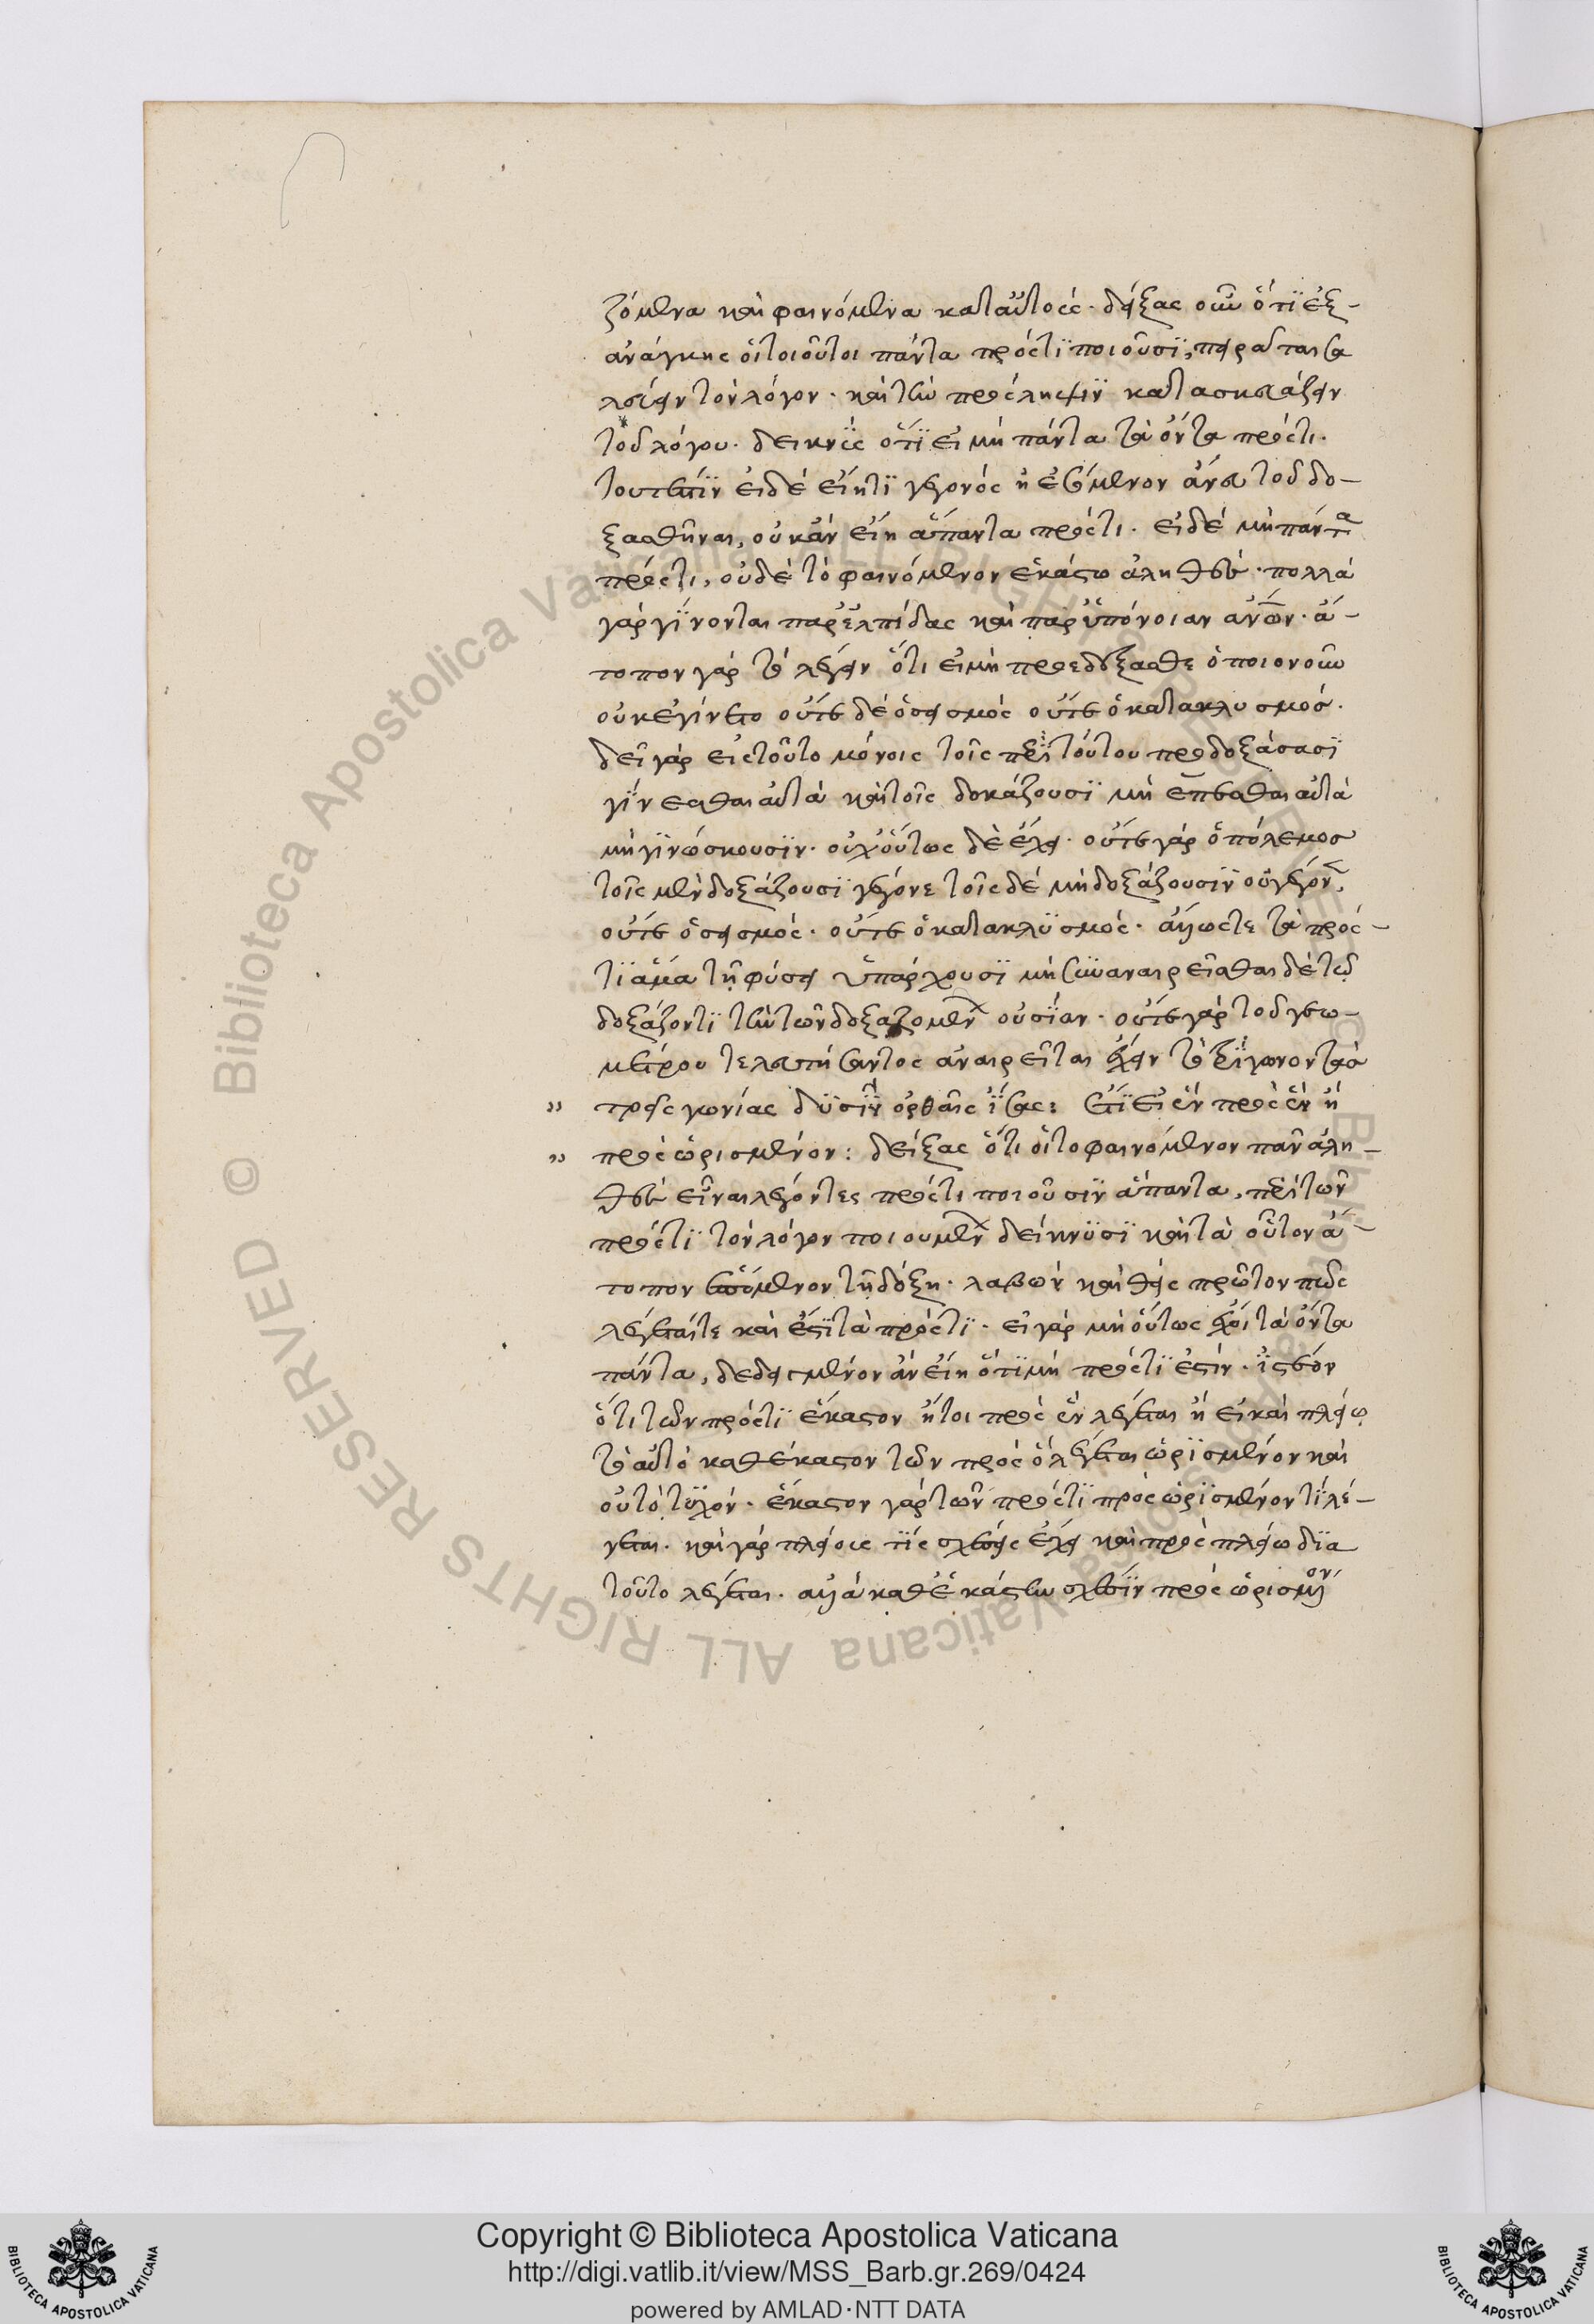 ζόμενα καὶ φαινόμενα κατ' αὐτούς. δείξας οὖν ὅτι ἐξ-
ανάγκης οἱ τοιοῦτοι πάντα πρός τι ποιοῦσι, πειρᾶται
τὸν λόγον. καὶ τὴν πρόσληψιν κατασκευάζειν
τοῦ λόγου. δεικνὺς ὅτι εἰ μὴ πάντα τὰ ὄντα πρός τι.
τουτέστιν εἰ δὲ εἴη τι γεγονὸς ἢ ἐσόμενον ἄνευ τοῦ δο-
ξασθῆναι, οὐκ ἂν εἴη ἅπαντα πρός τι. εἰ δὲ μὴ πάντα
πρός τι, οὐδὲ τὸ φαινόμενον ἑκάστω ἀληθές. πολλὰ
γὰρ γίνονται παρ' ἐλπίδας καὶ παρ' ὑπόνοιαν ἀνων. ἄ-
τοπον γὰρ τὸ λέγειν ὅτι εἰ μὴ προεδοξάσθη ὁποιονοῦν
οὐκ ἐγίνετο οὔτε δὲ ὁ σεισμὸς οὔτε ὁ κατακλυσμός.
δεῖ γὰρ εἰ τοῦτο μόνοις τοῖς περὶ τούτου προδοξάσασι
γίνεσθαι αὐτὰ καὶ τοῖς δοκάζουσι μὴ ἔπεσθαι αὐτὰ
μὴ γινώσκουσιν. οὐχ οὕτως δὲ ἔχει. οὔτε γὰρ ὁ πόλεμος
τοῖς μὲν δοξάζουσι γέγονε τοῖς δὲ μὴ δοξάζουσιν οὐ γέγονε,
οὔτε ὁ σεισμός. οὔτε ὁ κατακλυσμός. ἄλλως τε τὰ πρός
τι ἅμα τῇ φύσει ὑπάρχουσι μὴ συναναιρεῖσθαι δὲ τῷ
δοξάζοντι τὴν τῶν δοξαζομένων οὐσίαν. οὔτε γὰρ τοῦ γεω-
μέτρου τελευτήσαντος ἀναιρεῖται ἔχειν τὸ τρίγωνον τὰς
" τρεῖς γωνίας δυσὶν ὀρθαῖς ἴσας: ἔτι εἰ ἓν πρὸς ἓν ἢ
" πρὸς ὡρισμένον: δείξας ὅτι οἱ τὸ φαινόμενον πᾶν ἀλη-
θὲς εἶναι λέγοντες πρός τι ποιοῦσιν ἅπαντα, περὶ τῶν
πρός τι τὸν λόγον ποιουμένων δείκνυσι καὶ τὰ οὗτον ἄ-
τοπον ἑπόμενον τῇ δόξῃ. λαβὼν καὶ θεὶς πρῶτον πῶς
λέγεταί τε καὶ ἔστι τὰ πρός τι. εἰ γὰρ μὴ οὕτως ἔχοι τὰ ὄντα
πάντα, δεδειγμένον ἂν εἴη ὅτι μὴ πρός τι ἐστίν. ἰστέον
ὅτι τῶν πρός τι ἕκαστον ἤτοι πρὸς ἓν λέγεται ἢ εἰ καὶ πλείω
τὸ αὐτὸ καθ' ἕκαστον τῶν πρὸς ὃ λέγεται ὡρισμένον καὶ
οὐ τὸ τυχόν. ἕκαστον γὰρ τῶν πρός τι πρὸς ὡρισμένον τι λέ-
γεται. καὶ γὰρ πλείους τις σχέσεις ἔχει καὶ πρὸς πλείω δια
τοῦτο λέγεται. ἀλλὰ καθ' ἑκάστην σχέσιν πρὸς ὡρισμένον
Copyright © Biblioteca Apostolica Vaticana
http://digi.vatlib.it/view/MSS_Barb.gr.269/0424
powered by AMLAD·NTT DATA
BIBLIOTECA APOSTOLICA VATICANA
BIBLIOTECA APOSTOLICA VATICANA
© Biblioteca Apostolica Vaticana ALL RIGHTS RESERVED
© Biblioteca Apostolica Vaticana ALL RIGHTS RESERVED